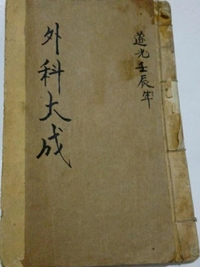 道光壬辰年
外科大成